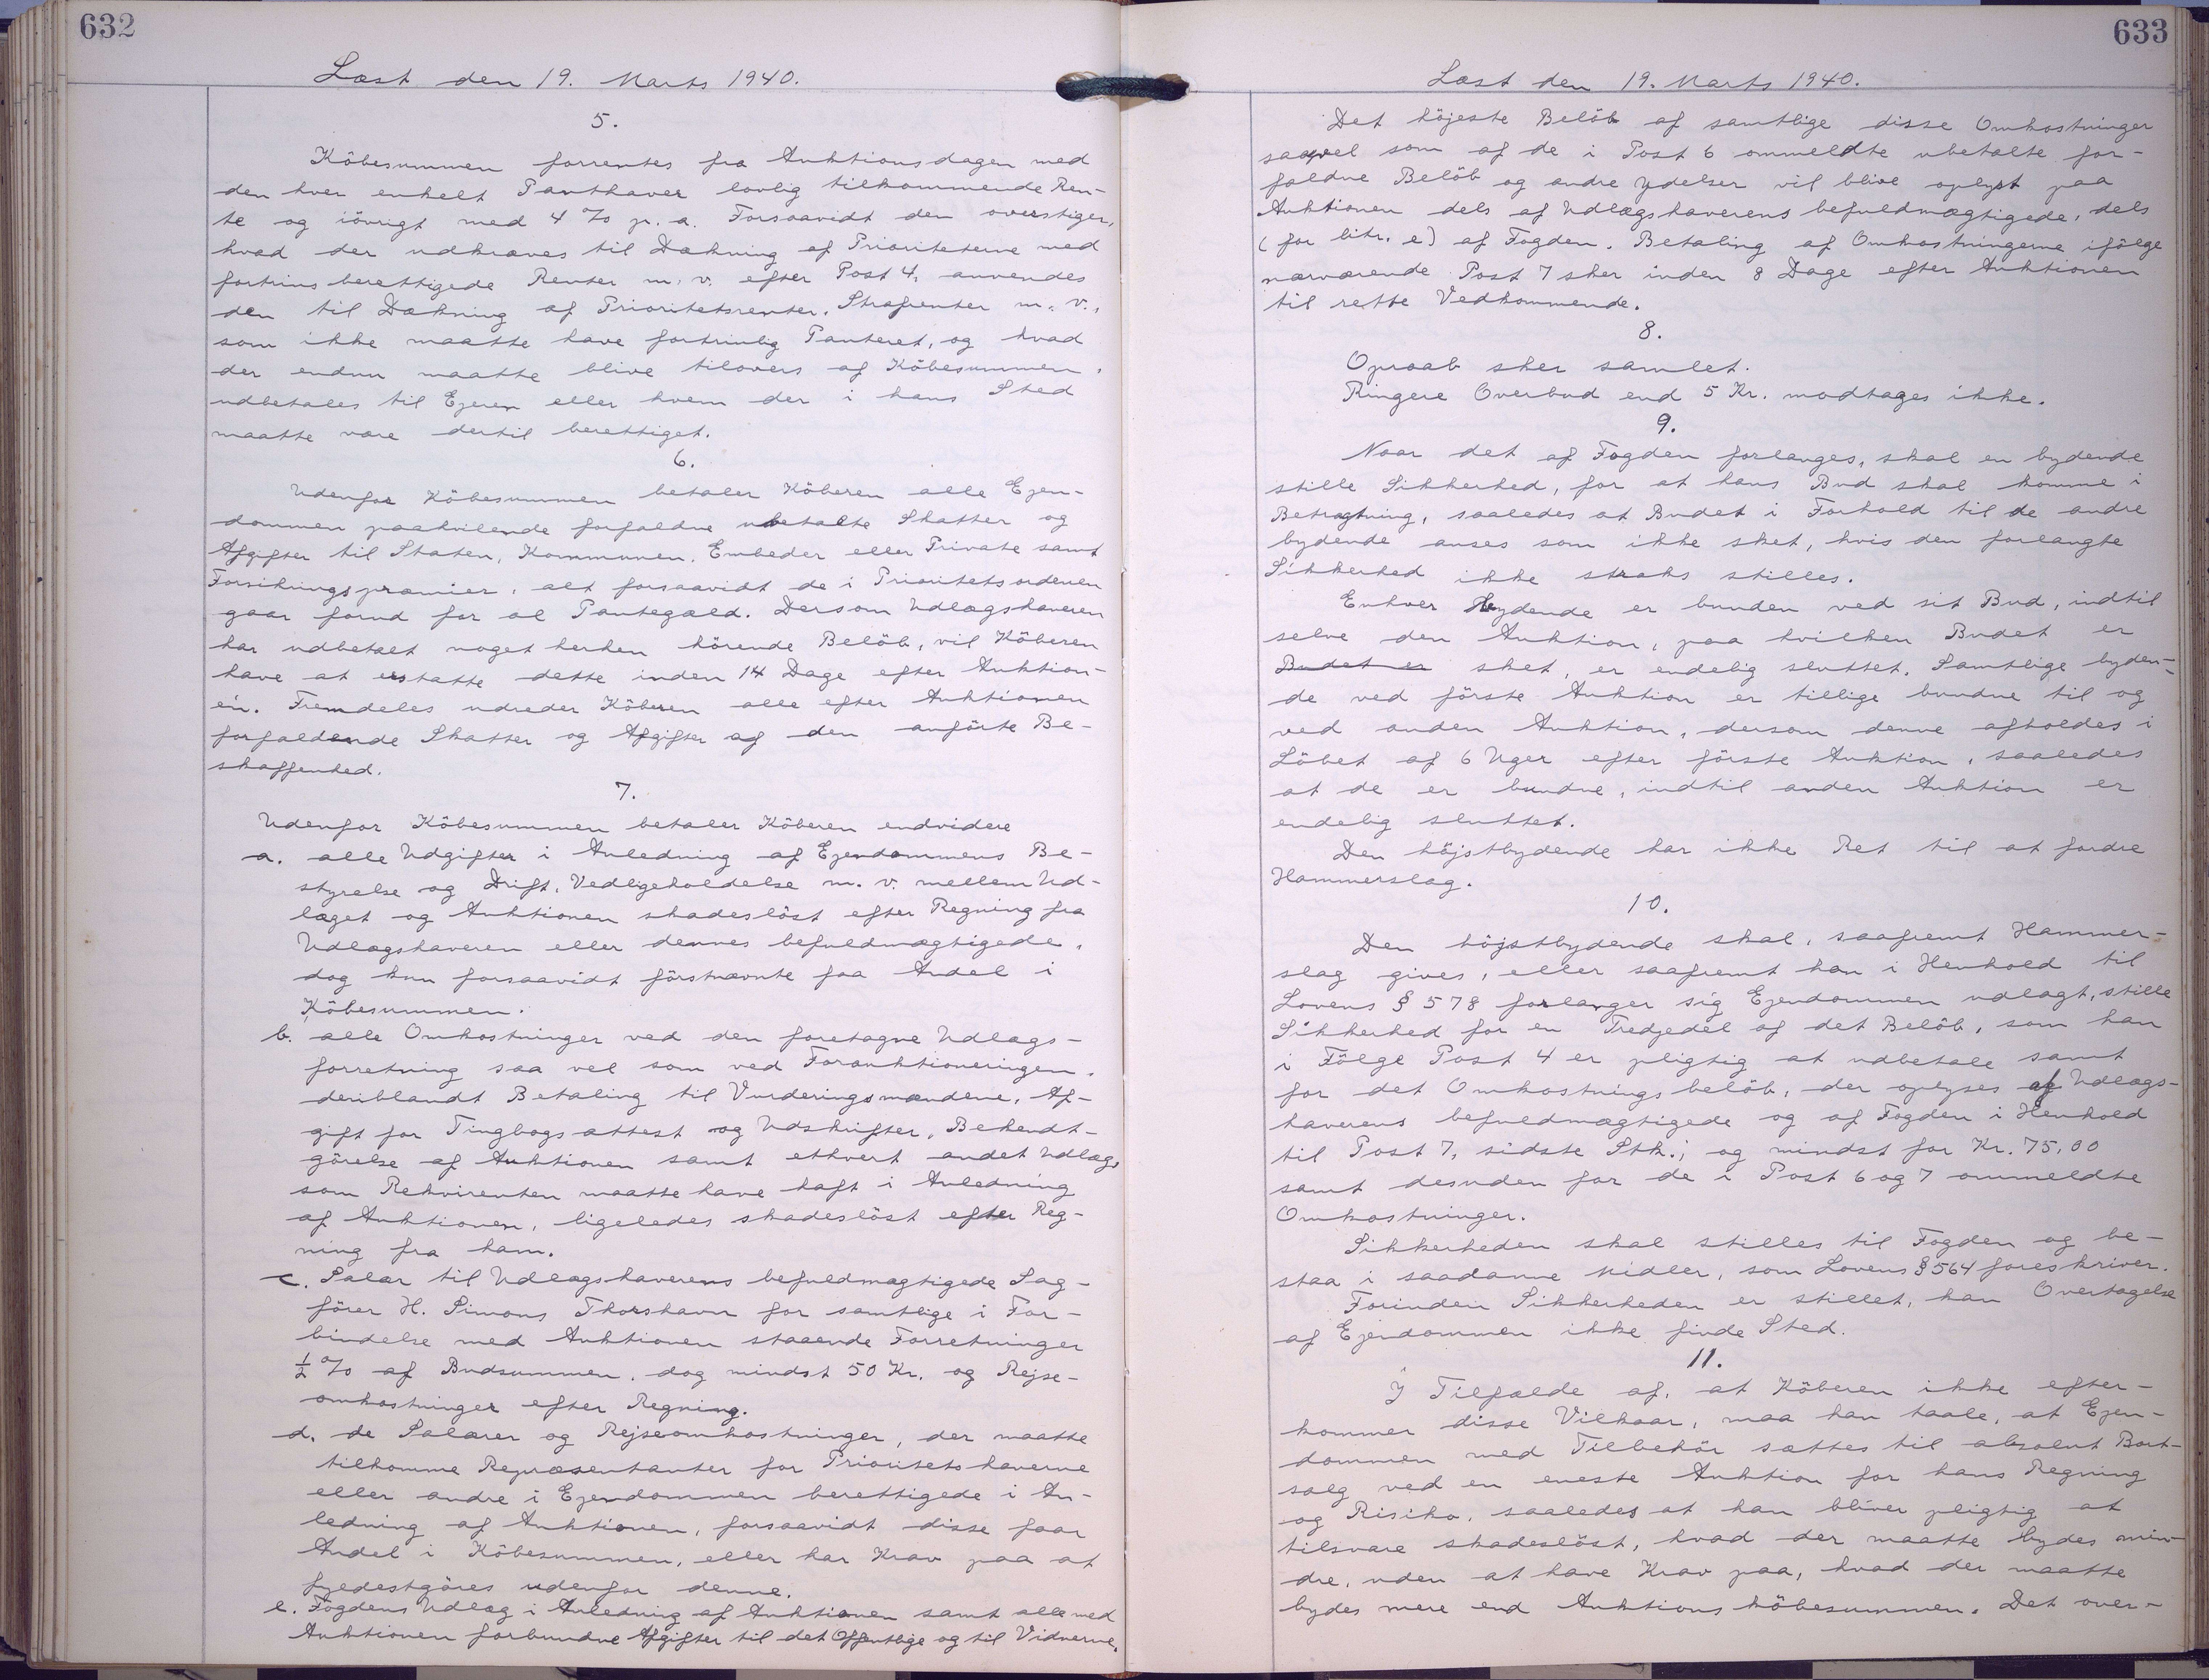 632
Læst den 19. Marts 1940.
5.
Köbesummen forrentes fra Auktionsdagen med
den hver enkelt Panthaver lovlig tilkommende Ren-
te og iövrigt med 4 % p. a. Forsaavidt den overstiger,
hvad der udkræves til Dækning af Prioriteterne med
fortrinsberettigede Renter m. v. efter Post 4, anvendes
den til Dækning af Prioritetsrenter, Strafrenter m. v.,
som ikke maatte have fortrinlig Panteret, og hvad
der endnu maatte blive tilovers af Köbesummen,
udbetales til Ejeren eller hvem der i hans Sted
maatte være dertil berettiget.
6.
Udenfor Köbesummen betaler Köberen alle Ejen-
dommen paahvilende forfaldne ubetalte Skatter og
Afgifter til Staten, Kommunen, Embeder eller Private samt
Forsikringspræmier, alt forsaavidt de i Prioritetsordenen
gaar forud for al Pantegæld. Dersom Udlægshaveren
har udbetalt noget herhen hörende Belöb, vil Köberen
have at erstatte dette inden 14 Dage efter Auktion-
en. Fremdeles udreder Köberen alle efter Auktionen
forfaldende Skatter og Afgifter af den anförte Be-
skaffenhed.
7.
Udenfor Köbesummen betaler Köberen endvidere
a. alle Udgifter i Anledning af Ejendommens Be-
styrelse og Drift, Vedligeholdelse m. v. mellem Ud-
læget og Auktionen skadeslöst efter Regning fra
Udlægshaveren eller dennes befuldmægtigede,
dog kun forsaavidt förstnævnte faa Andel i
Köbesummen.
b. alle Omkostninger ved den foretagne Udlægs-
forretning saa vel som ved Forauktioneringen,
deriblandt Betaling til Vurderingsmændene, Af-
gift for Tingbogsattest og Udskrifter, Bekendt-
görelse af Auktionen samt ethvert andet Udlæg,
som Rekvirenten maatte have haft i Anledning
af Auktionen, ligeledes skadeslöst efter Reg-
ning fra ham.
c. Salær til Udlægshaverens befuldmægtigede Sag-
förer H. Simons Thorshavn for samtlige i For-
bindelse med Auktionen staaende Forretninger
½ % af Budsummen, dog mindst 50 Kr. og Rejse-
omkostninger efter Regning.
d. de Salærer og Rejseomkostninger, der maatte
tilkomme Repræsentanter for Prioritetshaverne
eller andre i Ejendommen berettigede i An-
ledning af Auktionen, forsaavidt disse faar
Andel i Köbesummen, eller har Krav paa at
fyedestgöres udenfor denne.
e. Fogdens Udlæg i Anledning af Auktionen samt alle med
Auktionen forbundne Afgifter til det Offentlige og til Vidnerne.
633
Læst den 19. Marts 1940.
Det höjeste Belöb af samtlige disse Omkostninger
saavel som af de i Post 6 ommeldte ubetalte for-
faldne Belöb og andre Ydelser vil blive oplyst paa
Auktionen dels af Udlægshaverens befuldmægtigede, dels
(for litr. e) af Fogden. Betaling af Omkostningerne ifölge
nærværende Post 7 sker inden 8 Dage efter Auktionen
til rette Vedkommende.
8.
Opraab sker samlet.
Ringere Overbud end 5 Kr. modtages ikke.
9.
Naar det af Fogden forlanges, skal en bydende
stille Sikkerhed, for at hans Bud skal komme i
Betragtning, saaledes at Budet i Forhold til de andre
bydende anses som ikke sket, hvis den forlangte
Sikkerhed ikke straks stilles.
Enhver bydende er bunden ved sit Bud, indtil
selve den Auktion, paa hvilken Budet er
Budet er sket, er endelig sluttet. Samtlige byden-
de ved förste Auktion er tillige bundne til og
ved anden Auktion, dersom denne afholdes i
Löbet af 6 Uger efter förste Auktion, saaledes
at de er bundne, indtil anden Auktion er
endelig sluttet.
Den höjstbydende har ikke Ret til at fordre
Hammerslag.
10.
Den höjstbydende skal, saafremt Hammer-
slag gives, eller saafremt han i Henhold til
Lovens § 578 forlanger sig Ejendommen udlagt, stille
Sikkerhed for en Tredjedel af det Belöb, som han
i Fölge Post 4 er pligtig at udbetale samt
for det Omkostningsbelöb, der oplyses af Udlægs-
haverens befuldmægtigede og af Fogden i Henhold
til Post 7, sidste Stk.; og mindst for Kr. 75,00
samt desuden for de i Post 6 og 7 ommeldte
Omkostninger.
Sikkerheden skal stilles til Fogden og be-
staa i saadanne Midler, som Lovens § 564 foreskriver.
Forinden Sikkerheden er stillet, kan Overtagelse
af Ejendommen ikke finde Sted.
11.
I Tilfælde af, at Köberen ikke efter-
kommer disse Vilkaar, maa han taale, at Ejen-
dommen med Tilbehör sættes til absolut Bort-
salg ved en eneste Auktion for hans Regning
og Risiko, saaledes at han bliver pligtig at
tilsvare skadeslöst, hvad der maatte bydes min-
dre, uden at have Krav paa, hvad der maatte
bydes mere end Auktionsköbesummen. Det over-